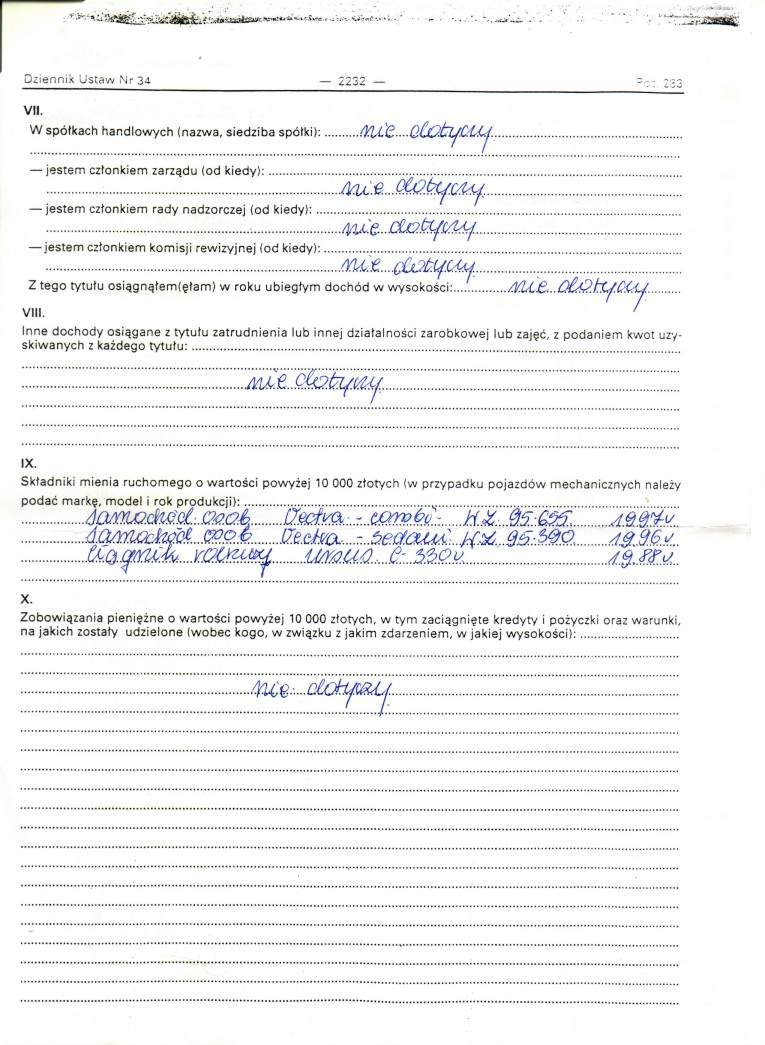 Dziennik Ustaw Nr 34 — 2232 — Poz. 283
VII.
W spółkach handlowych (nazwa, siedziba spółki): nie dotyczy
— jestem członkiem zarządu (od kiedy):
nie dotyczy
— jestem członkiem rady nadzorczej (od kiedy):
nie dotyczy
— jestem członkiem komisji rewizyjnej (od kiedy):
nie dotyczy
Z tego tytułu osiągnąłem(ęłam) w roku ubiegłym dochód w wysokości: nie dotyczy
VIII.
Inne dochody osiągane z tytułu zatrudnienia lub innej działalności zarobkowej lub zajęć, z podaniem kwot uzy-
skiwanych z każdego tytułu:
nie dotyczy
IX.
Składniki mienia ruchomego o wartości powyżej 10 000 złotych (w przypadku pojazdów mechanicznych należy
podać markę, model i rok produkcji):
samochód osob Vectra - combi - WZ 95-655 1997r.
samochód osob Vectra - sedan WZ 95-390 1996r.
ciągnik rolniczy ursus C-330 1988r.
X.
Zobowiązania pieniężne o wartości powyżej 10 000 złotych, w tym zaciągnięte kredyty i pożyczki oraz warunki,
na jakich zostały udzielone (wobec kogo, w związku z jakim zdarzeniem, w jakiej wysokości):
nie dotyczy